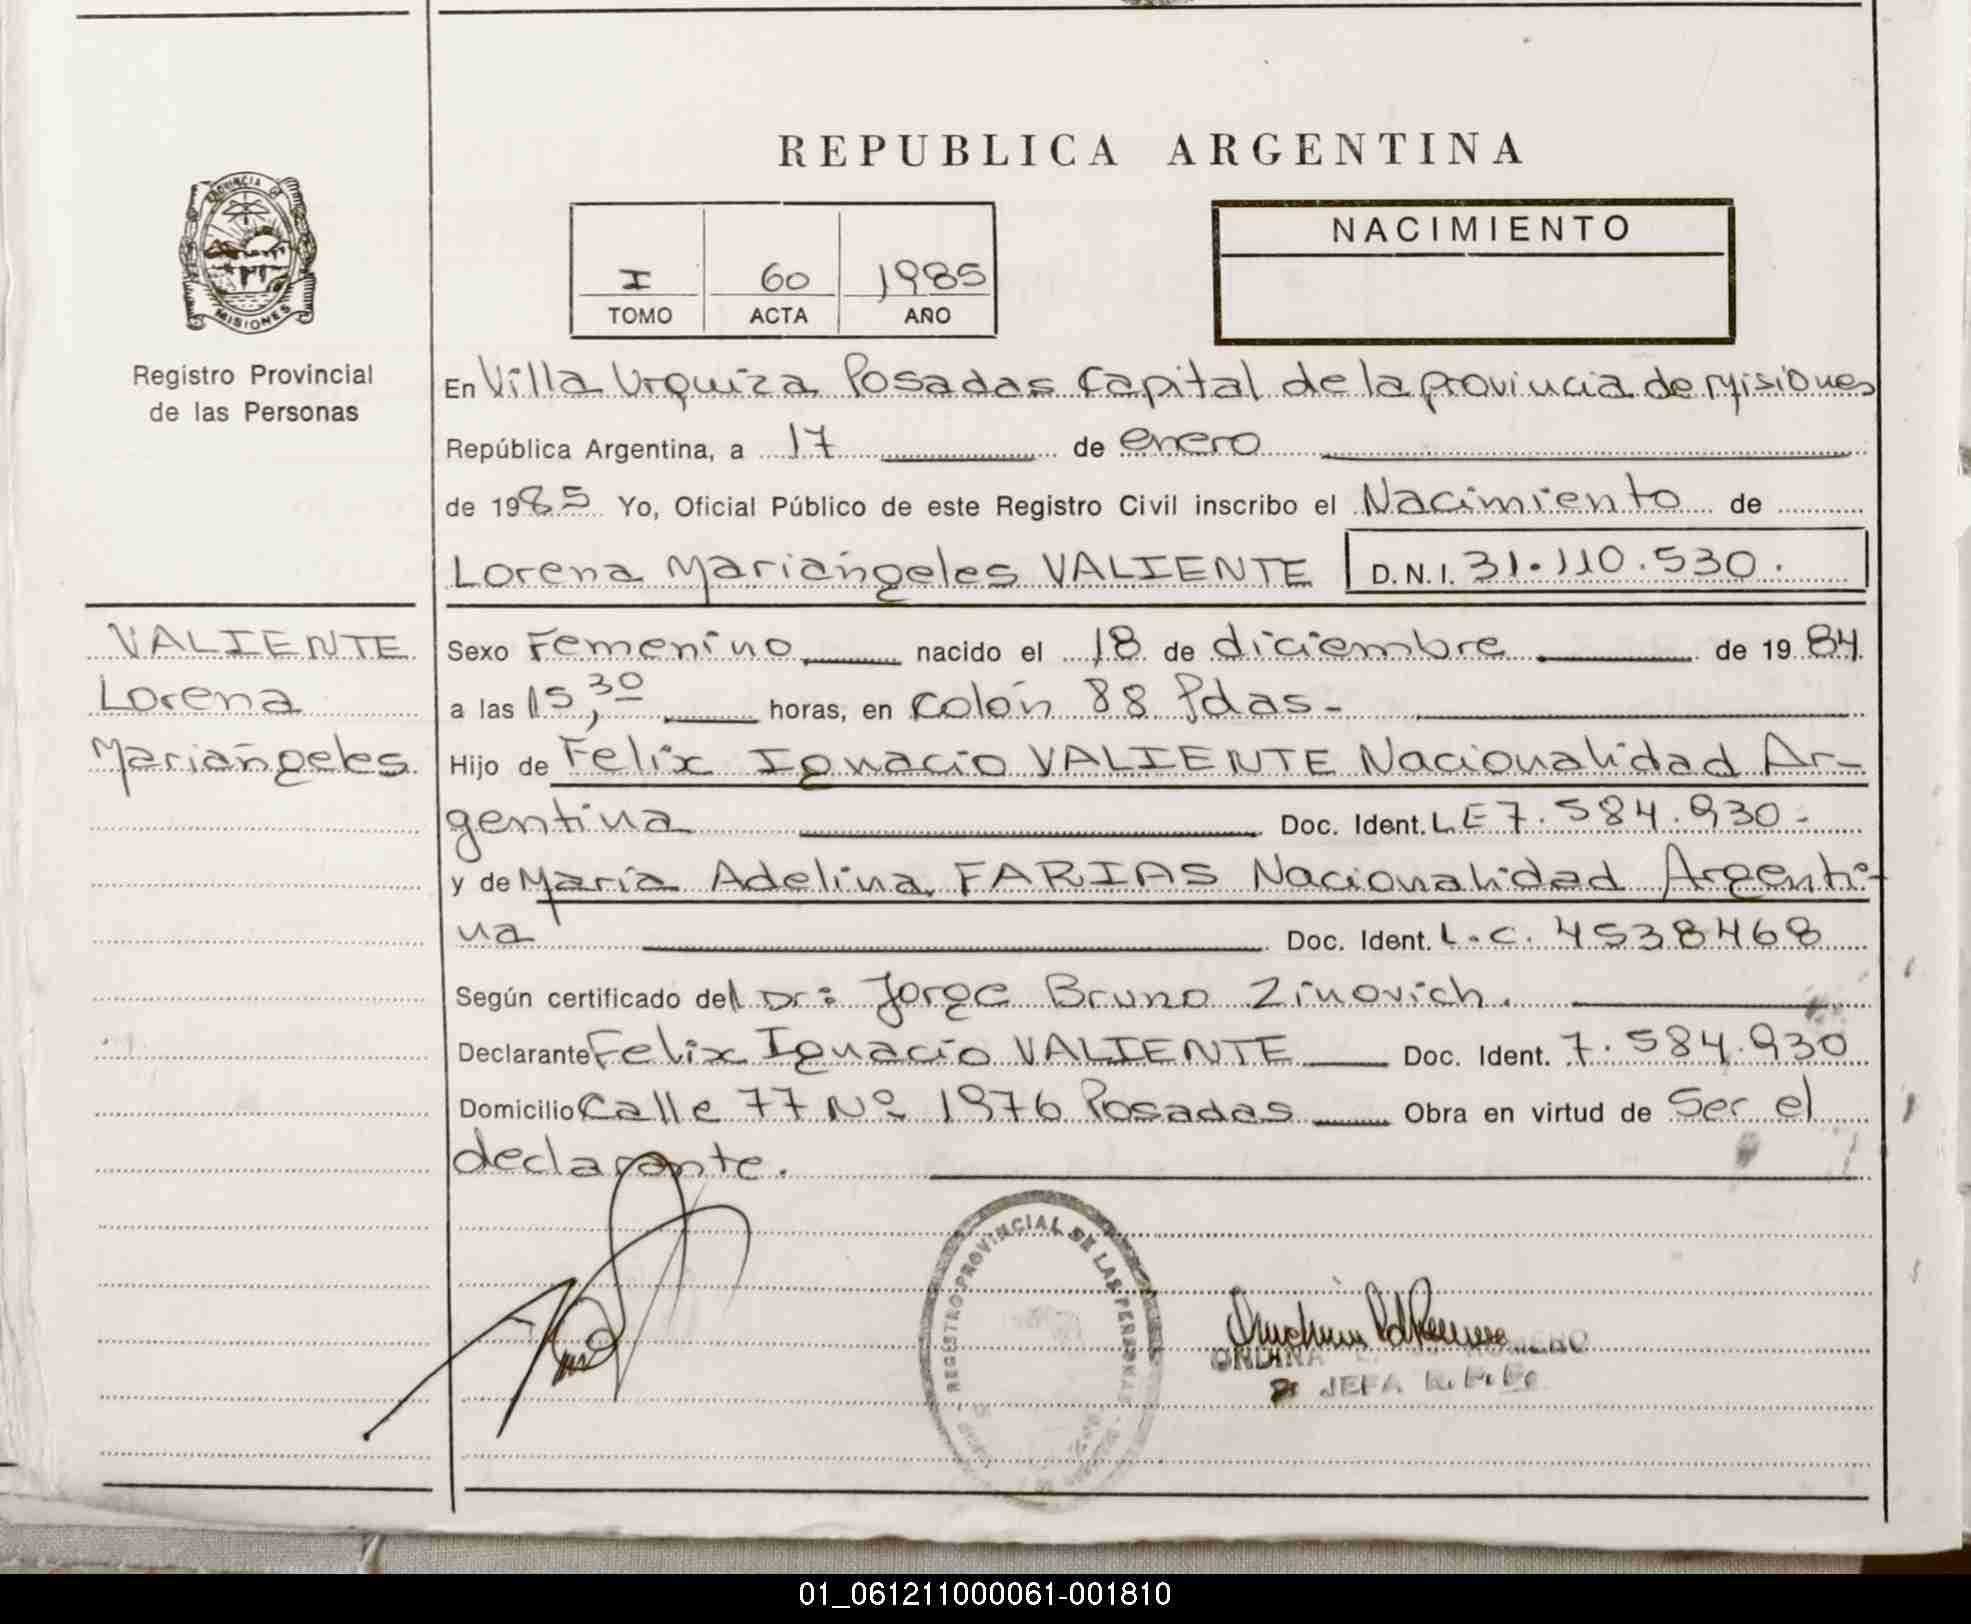 REPUBLICA ARGENTINA
PROVINCIA D
MISIONES
Registro Provincial
de las Personas
I 60 1985
TOMO ACTA AÑO
NACIMIENTO
En Villa Urquiza Posadas Capital de la provincia de Misiones
República Argentina, a 17 de enero
de 1985 Yo, Oficial Público de este Registro Civil inscribo el Nacimiento de
Lorena Mariángeles VALIENTE D.N.I. 31.110.530.
VALIENTE
Lorena
Mariángeles
Sexo Femenino nacido el 18 de diciembre de 1984
a las 15,30 horas, en Colón 88 Pdas-
Hijo de Felix Ignacio VALIENTE Nacionalidad Ar-
gentina Doc. Ident. LE 7.584.930-
y de María Adelina FARIAS Nacionalidad Argenti-
na Doc. Ident. L.C. 4538468
Según certificado del Dr: Jorge Bruno Zinovich.
Declarante Felix Ignacio VALIENTE Doc. Ident. 7.584.930
Domicilio Calle 77 Nº 1976 Posadas Obra en virtud de Ser el
declarante.
REGISTRO PROVINCIAL DE LAS PERSONAS
ORDINA ROMERO
JEFA
01_061211000061-001810